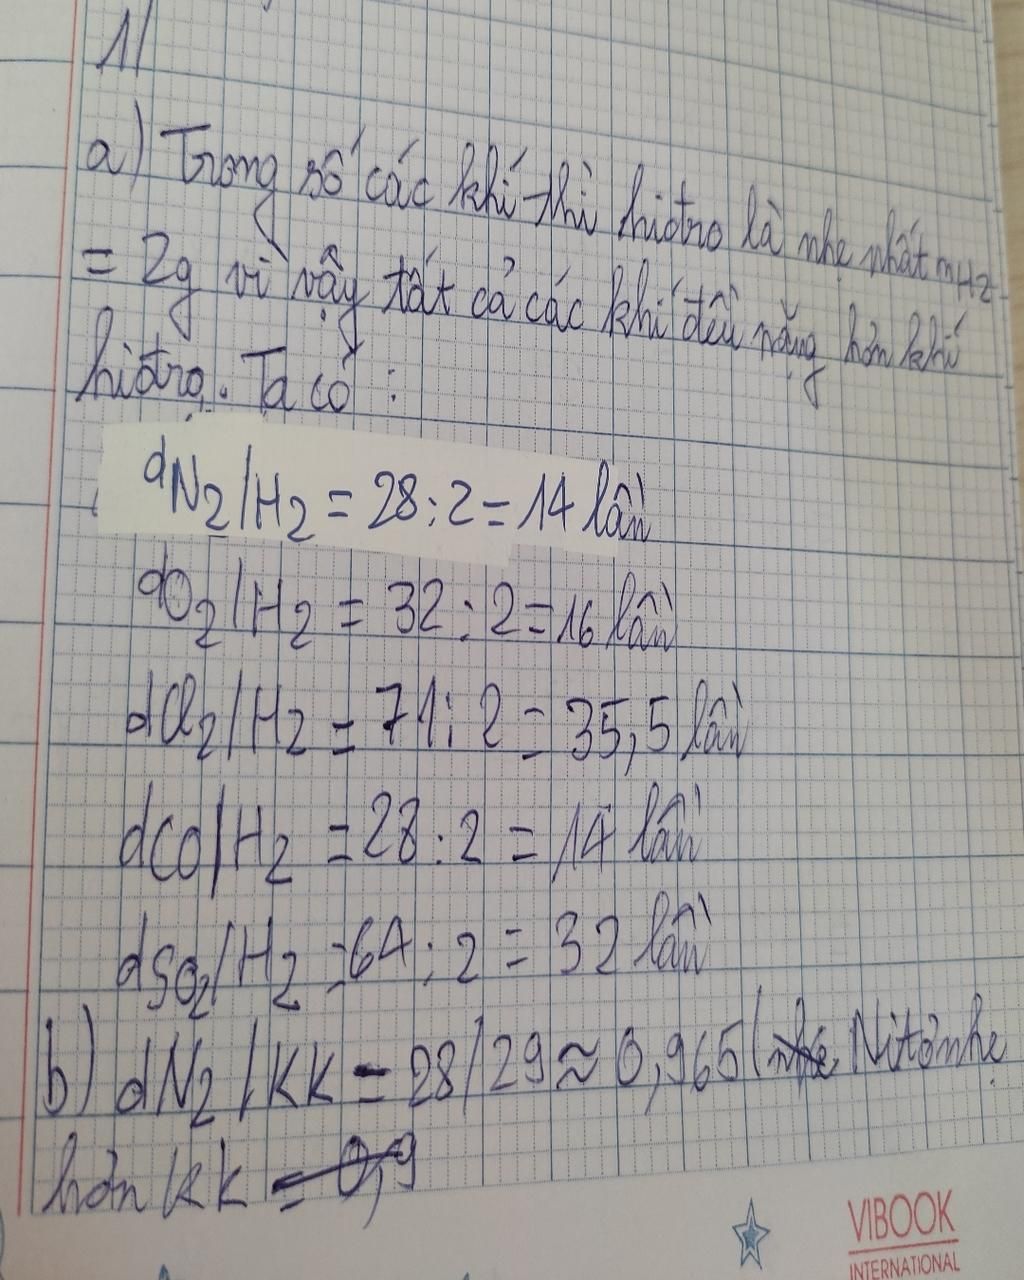 1/
a) Trong số các khí thì hiđro là nhẹ nhất mH2
= 2g vì vậy tất cả các khí đều nặng hơn khí
hiđro. Ta có :
dN2/H2 = 28 : 2 = 14 lần
dO2/H2 = 32 : 2 = 16 lần
dCl2/H2 = 71 : 2 = 35,5 lần
dCO/H2 = 28 : 2 = 14 lần
dSO2/H2 = 64 : 2 = 32 lần
b) dN2/KK = 28/29 ≈ 0,965 (nhẹ Nitơ nhẹ
hơn KK = 0,9
VIBOOK
INTERNATIONAL